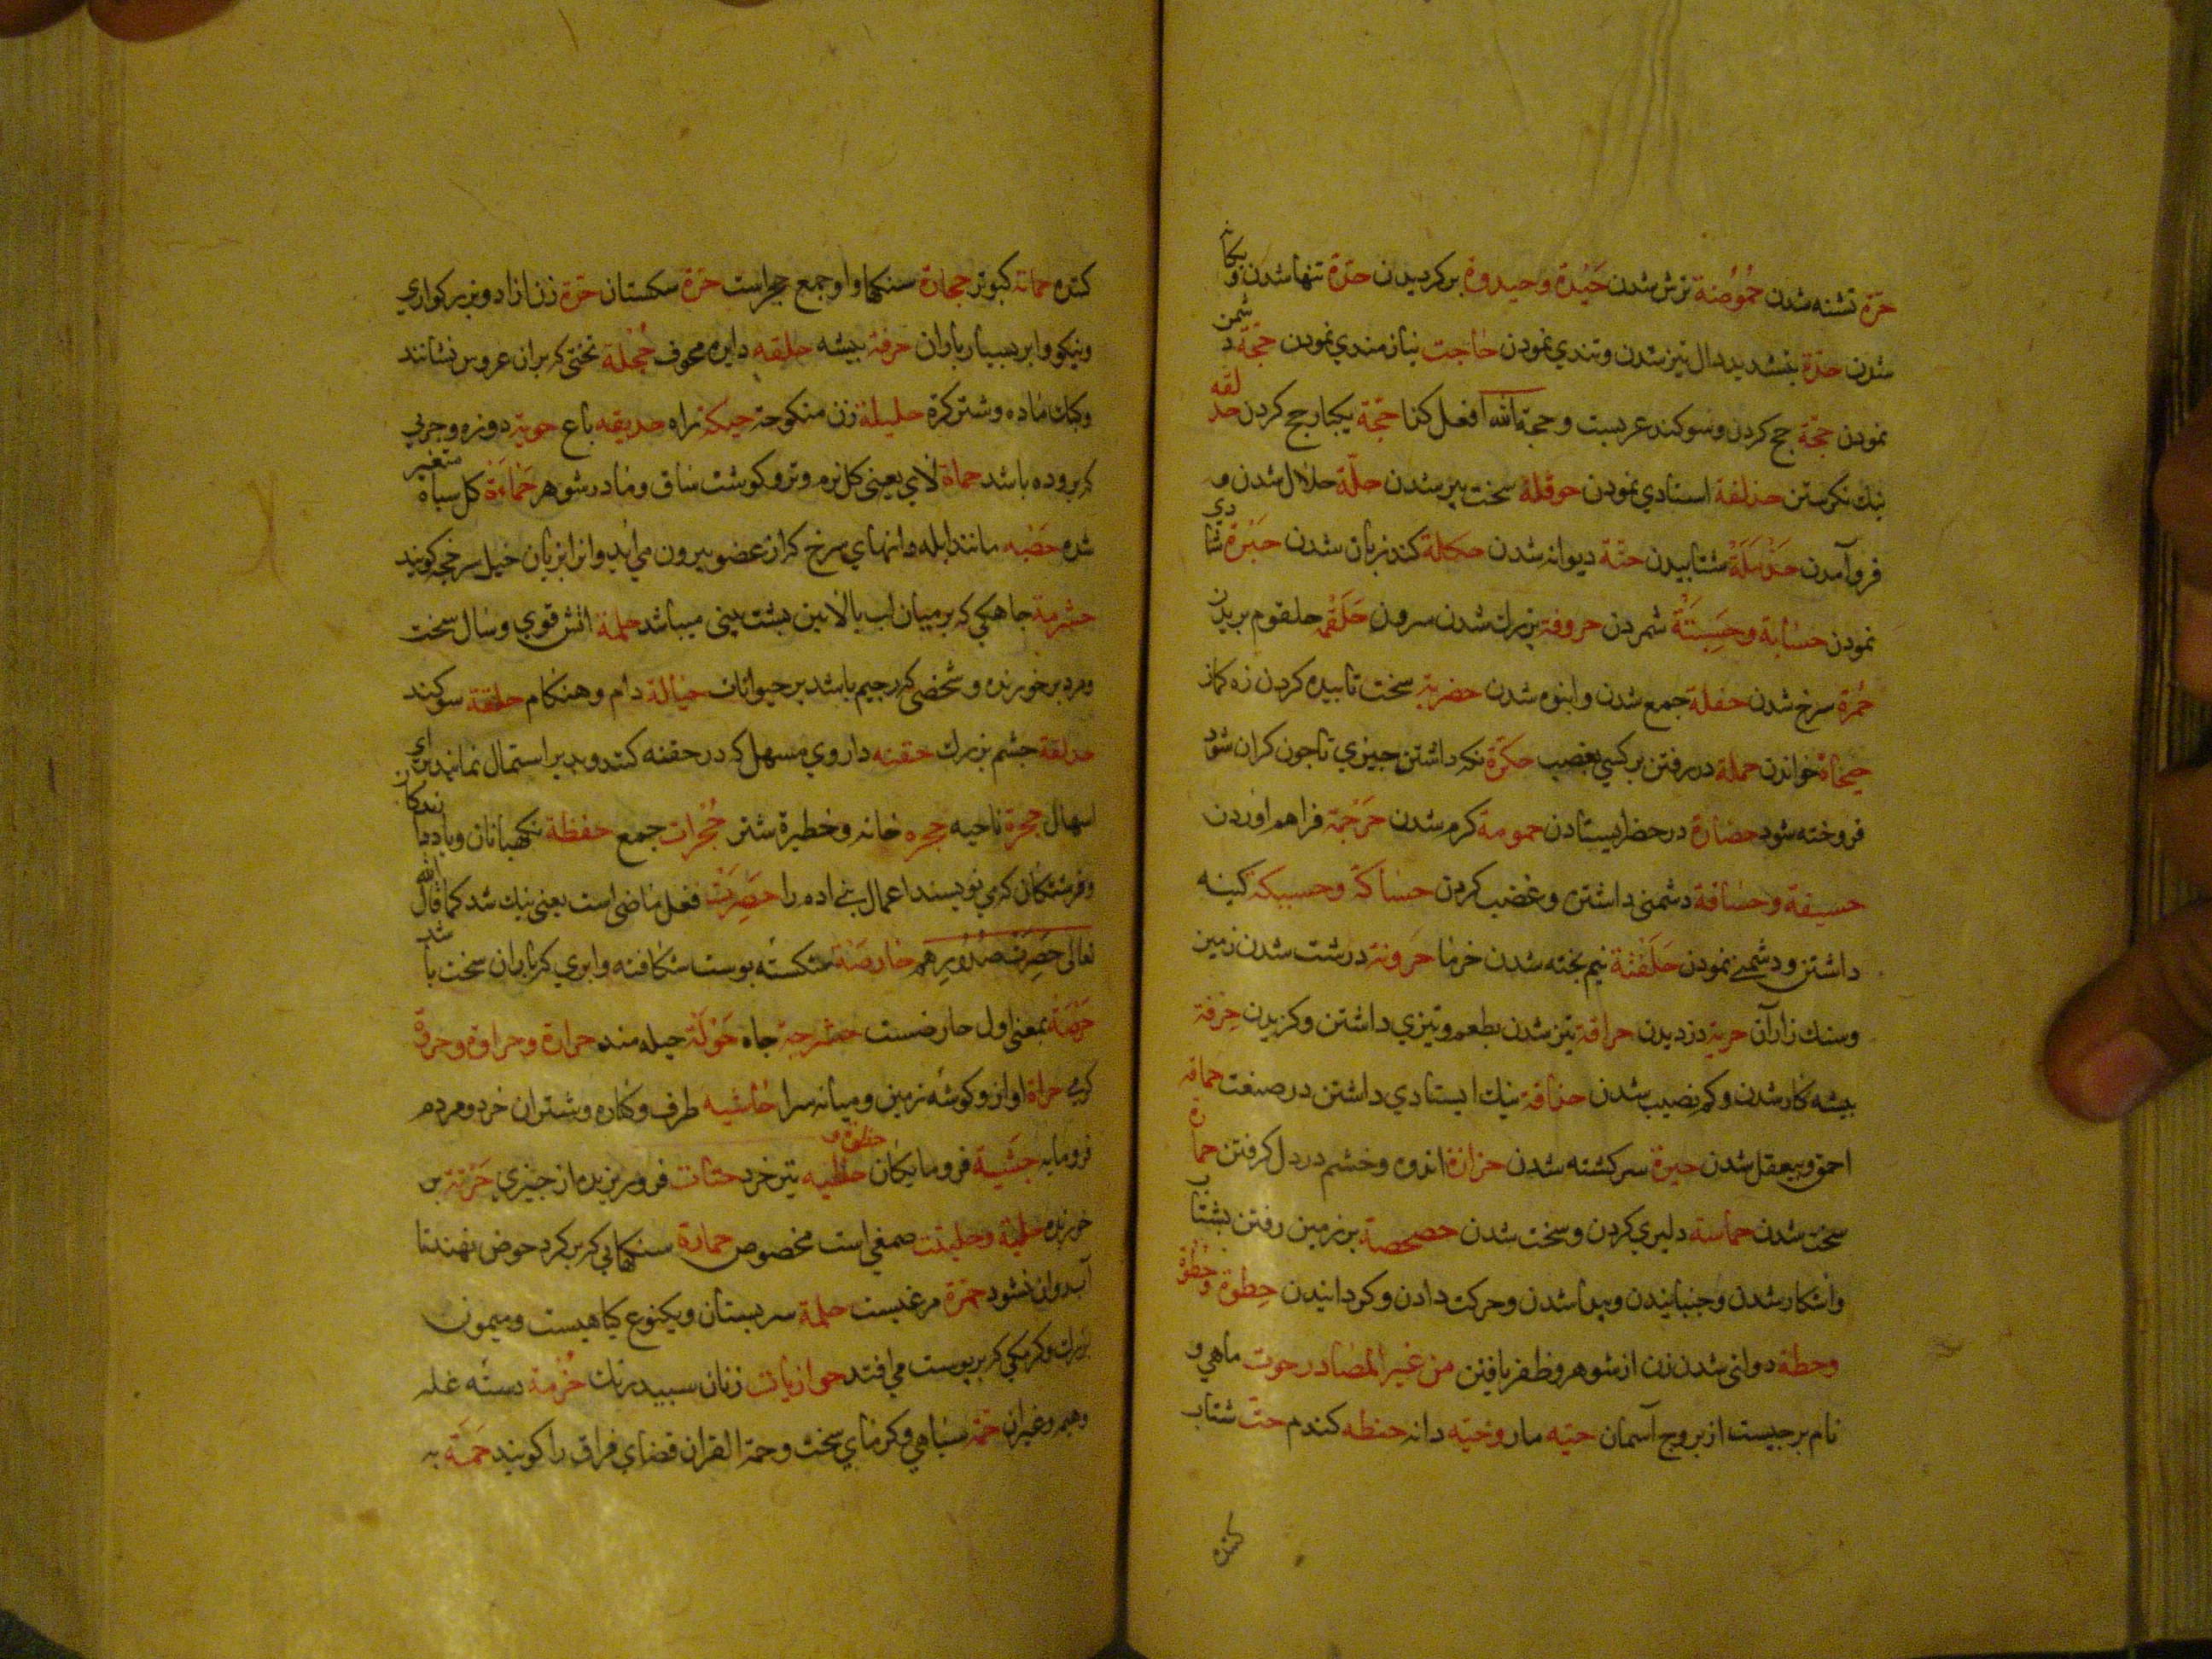 حرّة تشنه شدن حُمُوضة ترش شدن حَيْدة وحيدودة بركرديدن حدّة تنها شدن ويكانه
شدن حدّة بتشديد دال تيز شدن وتندي نمودن حاجت نيازمندي نمودن حجّة دشمن
نمودن حجّة حج كردن وسوكند عربست وحجة الله افعل كذا حجّة يكبار حج كردن حدلقه
نيك نكرستن حذلقة استادي نمودن حوقلة سخت پير شدن حلّة حلال شدن و
فروآمدن شتابيدن حنّة ديوانه شدن حكلة كندزبان شدن حَبْرة شادي
نمودن حسابة وحِسبَة شمردن حروفة بزرك شدن سرون حَلْقمة حلقوم بريدن
حُمرة سرخ شدن حفلة جمع شدن وانبوه شدن حضربة سخت تابيده كردن زه كمان
خواندن حملة دررفتن بر كسي بغضب حكرة نكه داشتن چيزي تاچون كران شود
فروخته شود حضارة درحضر ايستادن حمومة كرم شدن حَرْجَمة فراهم اوردن
حسيفة وحسافة دشمني داشتن وغضب كردن حساكة وحسيكة كينه
داشتن ودشمني نمودن حَلْقَنة نيم پخته شدن خرما حزونة درشت شدن زمين
وسنك زاران حربة دزديدن حرافة تيز شدن بطعم وتيزي داشتن وكزيدن حِرفة
پيشه كار شدن وكم نصيب شدن حذاقة نيك ايستادي داشتن درصنعت حماقة
احمق وبيعقل شدن حيرة سركشته شدن حزازة اندوه وخشم دردل كرفتن
سخت شدن حماسة دليري كردن وسخت شدن حصحصة برزمين رفتن بشتاب
واشكار شدن وجنبانيدن وپيدا شدن وحركت دادن وكردانيدن حِظوة وحُظوة
وحظة دولتي شدن زن از شوهر وظفر يافتن من غير المصادر حوت ماهي و
نام برجيست از بروج آسمان حيّه مار وحبّه دانه حنطه كندم حثّ شتاب
كننده
كننده حمامة كبوتر حجارة سنكها واو جمع حجراست حرّة سنكستان حرّة زن ازاد وبزركواري
ونيكو وابر بسيار باران حرفة پيشه حلقه دايره مجوف حجلة تختي كه بران عروس نشانند
وكبك ماده وشتركره حليلة زن منكوحة حديقه باغ دوزه وچربي
كه بروده باشد حماة لاي يعني كل نرم وتر وكوشت ساق ومادر شوهر حَمأة كل سياه متغير
شده حصبه مانند ابله دانهاي سرخ كه از عضو بيرون مي ايد وانرا بزبان خيل سرخجه كويند
حثرمة چاهكي كه برميان لب بالائين پشت بيني ميباشد حطمة اتش قوي وسال سخت
ومرد پرخورنده وشخصي كه رحيم باشد بر حيوانات حبالة دام وهنكام حلقة سوكند
حدلقة چشم بزرك حقنه داروي مسهل كه درحقنه كنند وبدبر استمال نمايند براي
اسهال حجرة ناحيه حجره خانه وخطيرة شتر حُجُرات جمع حفظة نكهبانان وياددارندكان
وفرشتكان كه مي نويسند اعمال بني ادم را حَصِرَتْ فعل ماضي است يعني تنك شد كما قال الله
تعالى حَصِرَتْ صُدُورُهم حارصة شكسته پوست شكافته وابري كه باران سخت باشد
حَرْصة بمعني اول حارصست حشرجة چاه حُوَلَة حيله مند حرارة وحراوة وحروة
كرمي حراة اواز وكوشه زمين وميانه سرا حاشيه طرف وكناره وشتران خرد ومردم
فرومايه فرومايكان حظوة تير خرد حتات فروريزيده از چيزي
خورنده صمغي است مخصوص حمارة سنكهايي كه بركرد حوض نهندتا
آب روان نشود حمّرة مرغيست حلمة سرپستان ويكنوع كياهيست وميمون
بزرك وكرمكي كه برپوست مي افتد حواريات زنان سپيد رنك حُزمة دسته غله
وهيمه وغيران حُمّة سياهي وكرماي سخت وحمة الفراق قضاي فراق را كويند حَمَة به